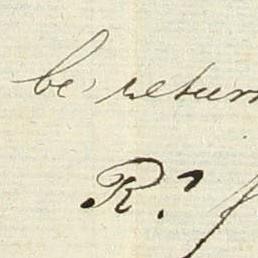 be return
R.